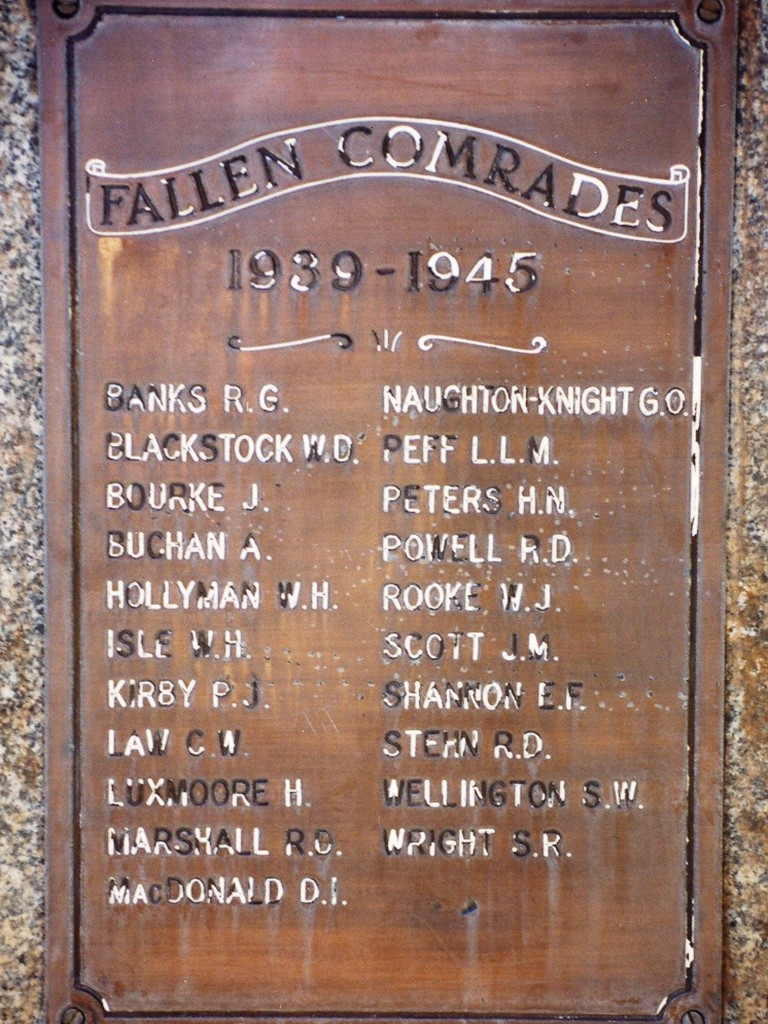 FALLEN COMRADES
1939-1945
BANKS R.G.
BLACKSTOCK W.D.
BOURKE J.
BUCHAN A.
HOLLYMAN W.H.
ISLE W.H.
KIRBY P.J.
LAW C.W.
LUXMOORE H.
MARSHALL R.D.
MACDONALD D.I.
NAUGHTON-KNIGHT G.O.
PEFF L.L.M.
PETERS H.N.
POWELL R.D.
ROOKE W.J.
SCOTT J.M.
SHANNON E.F.
STEHN R.D.
WELLINGTON S.W.
WRIGHT S.R.